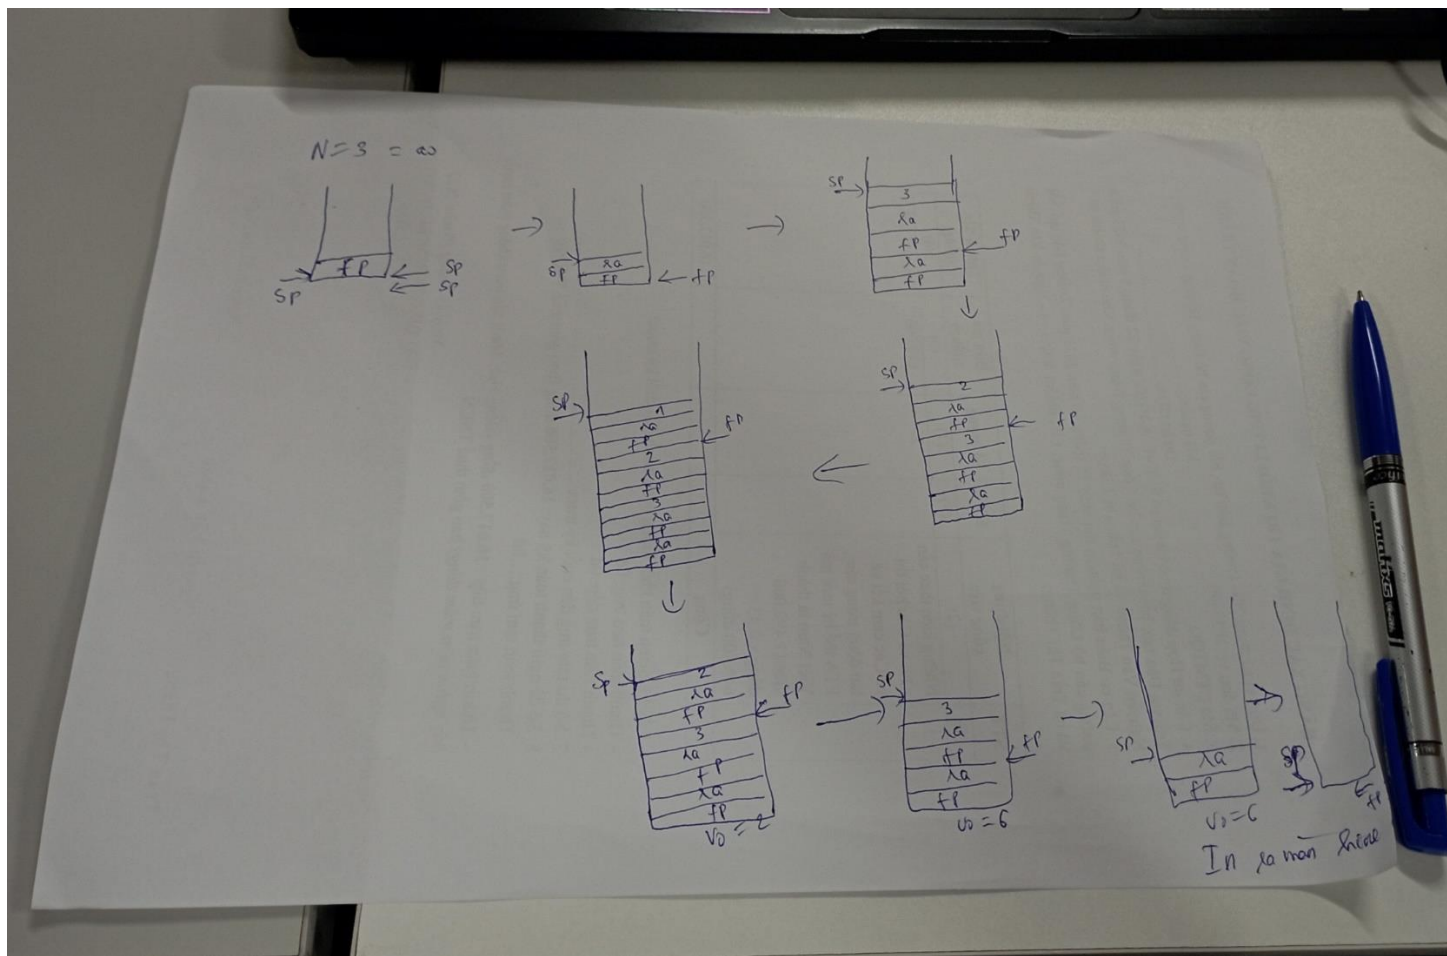 N=3 = a0
fP
SP
SP
SP
ra
fP
SP
fP
3
ra
fP
ra
fP
SP
fP
2
ra
fP
3
ra
fP
ra
fP
SP
fP
1
ra
fP
2
ra
fP
3
ra
fP
ra
fP
SP
fP
2
ra
fP
3
ra
fP
ra
fP
SP
fP
V0 = 2
3
ra
fP
ra
fP
SP
fP
V0 = 6
ra
fP
SP
V0 = 6
SP
fP
In ra màn hình
mnhxs